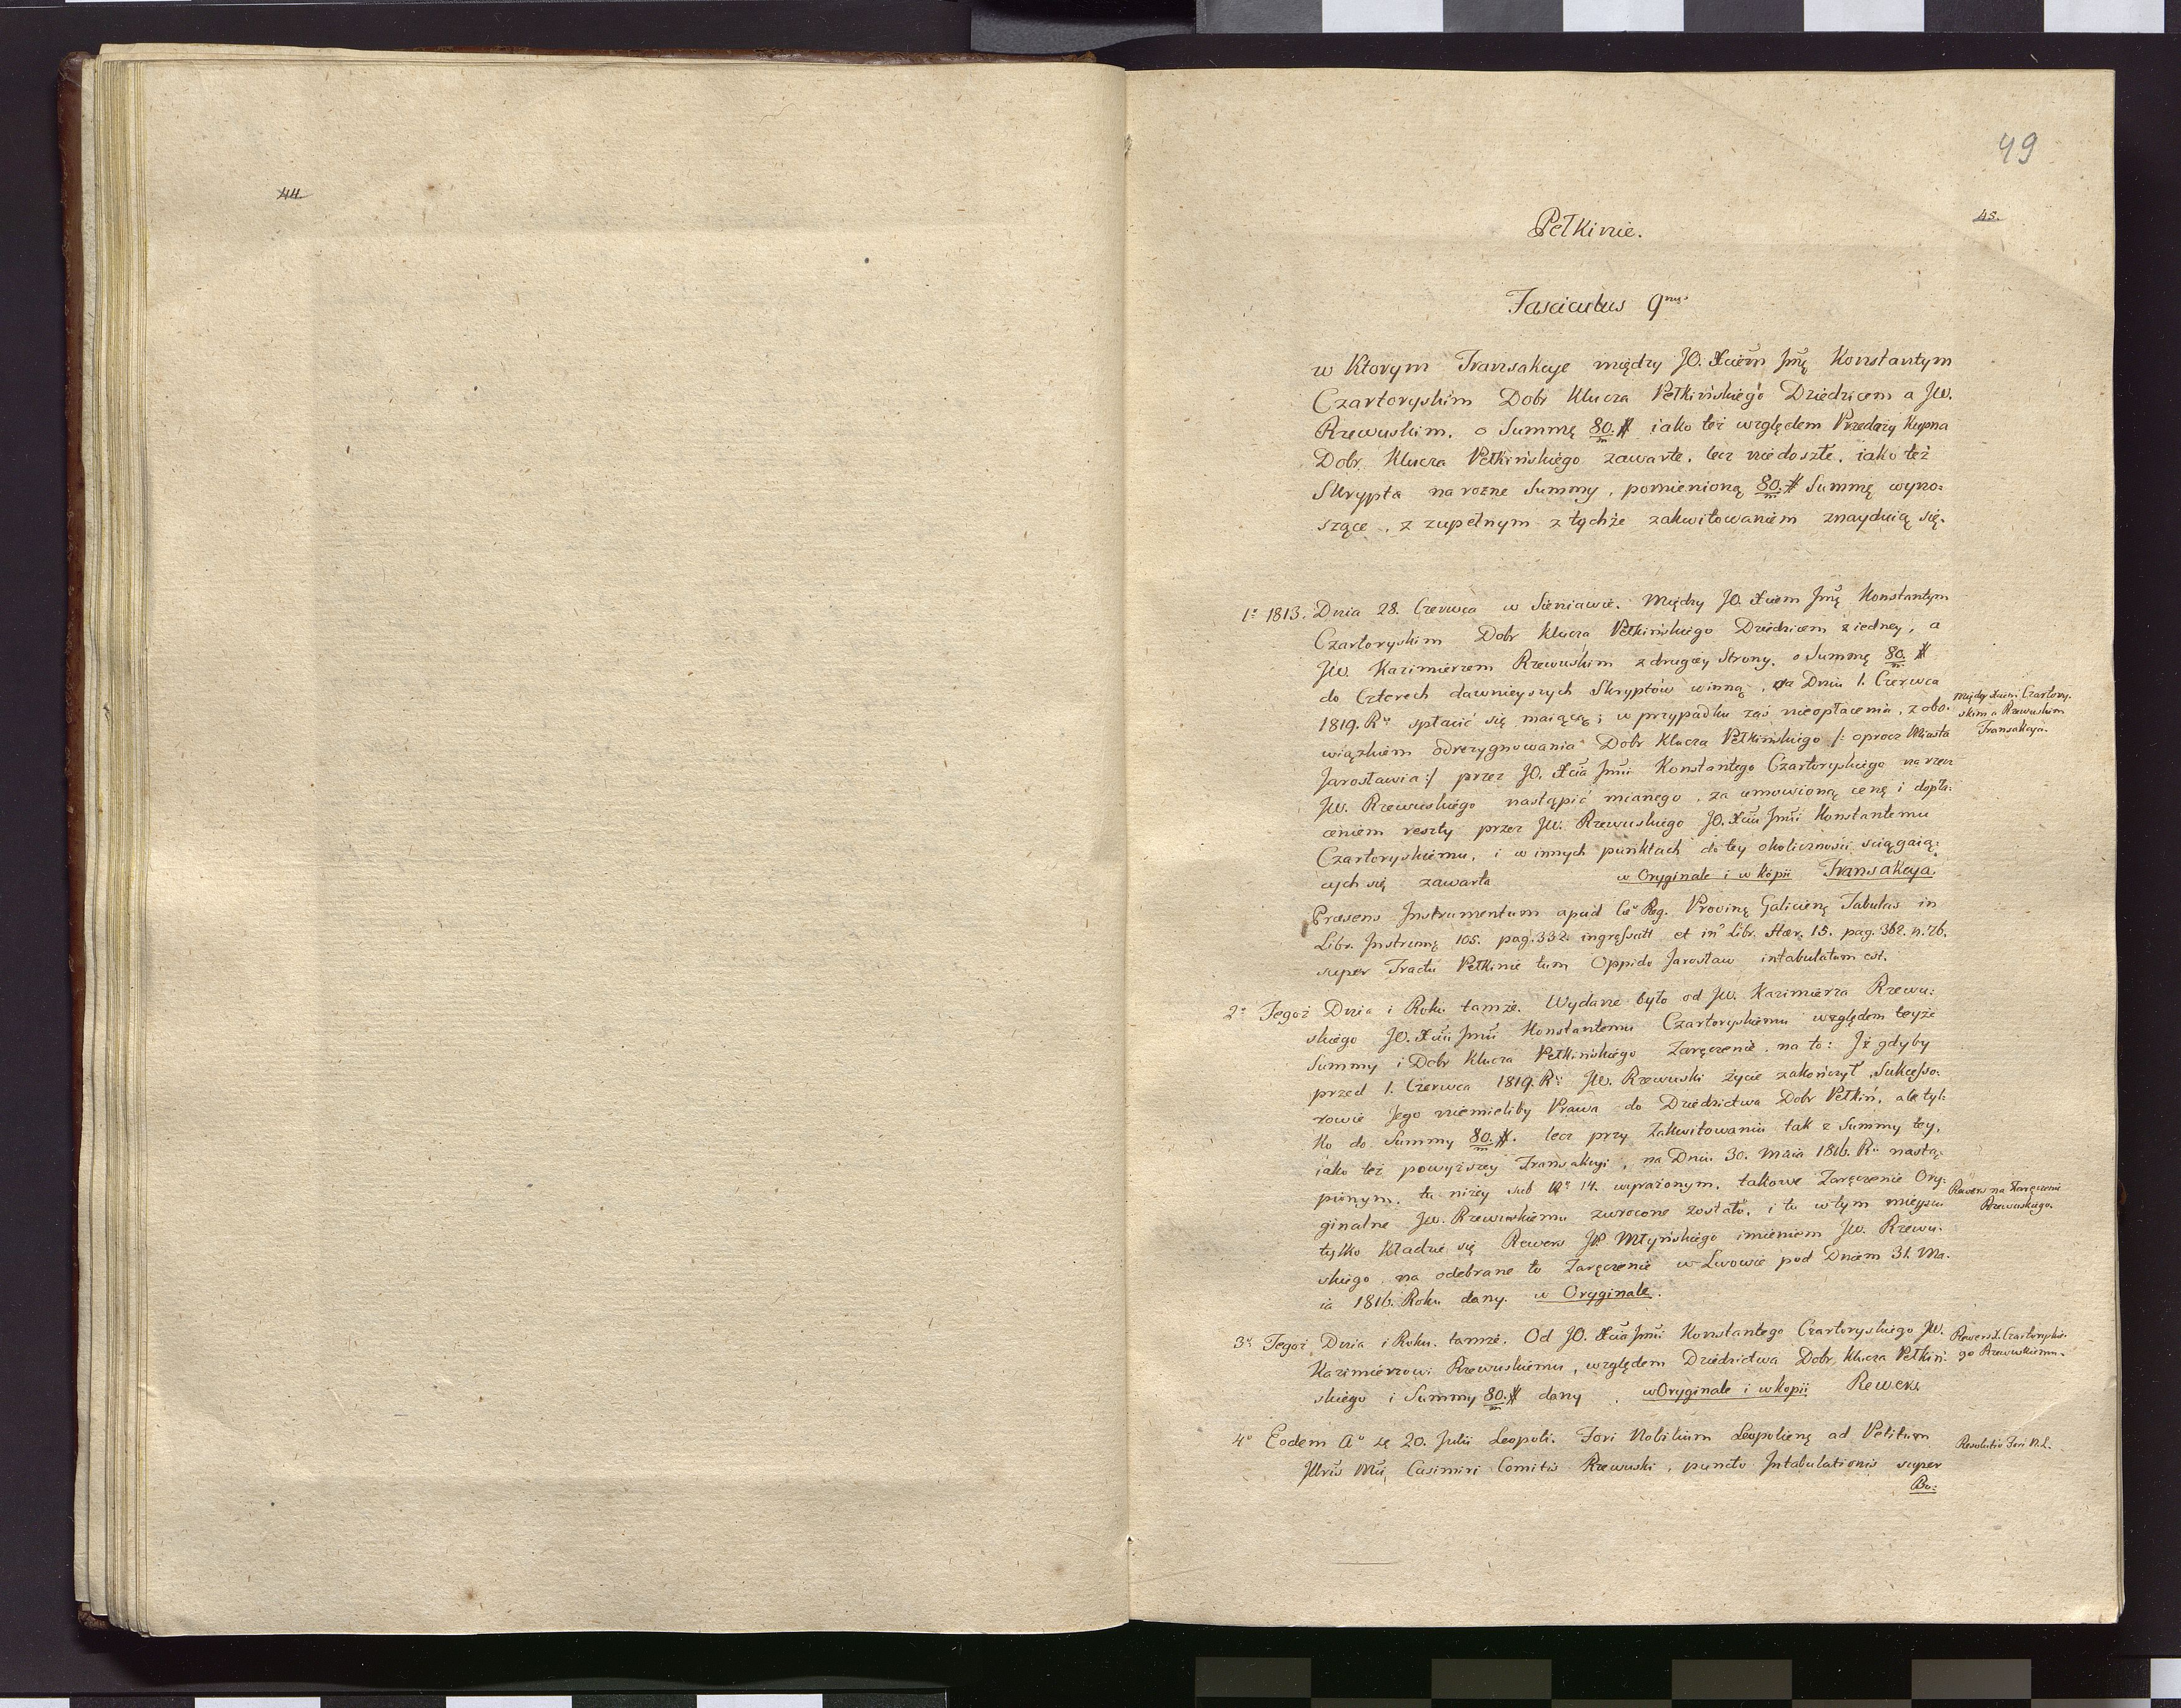 44
49
45.
Pełkinie.
Fasciculus 9nus
w Ktorym Transakcye między JO. Xciem Jmę Konstantym
Czartoryskim Dobr Klucza Pełkińskiego Dziedzicem a JW.
Rzewuskim. o Summę 80/m # iako też względem Przedaży Kupna
Dobr Klucza Pełkińskiego zawarte. lecz niedoszłe. iako też
Skrypta na rożne Summy, pomienioną 80/m # Summę wyno:
szące, z zupełnym z tychże zakwitowaniem znayduią się.
1o 1813. Dnia 28. Czerwca w Sieniawie. Między JO. Xciem Jmę Konstantym
Czartoryskim Dobr Klucza Pełkińskiego Dziedzicem z iedney, a
JW. Kazimierzem Rzewuskim z drugiey Strony. o Summę 80/m #
do Czterech dawnieyszych Skryptów winną, na Dniu 1. Czerwca
1819. Ru spłacić się maiącą; w przypadku zaś nieopłacenia, z obo:
wiązkiem odrezygnowania Dobr Klucza Pełkińskiego /: oprocz Miasta
Jarosławia :/ przez JO. Xcia Jmci Konstantego Czartoryskiego na rzecz
JW. Rzewuskiego nastąpić mianego, za umowioną cenę i dopła:
ceniem reszty przez JW. Rzewuskiego JO. Xciu Jmci Konstantemu
Czartoryskiemu, i w innych punktach do tey okoliczności ściągaią:
cych się zawarta w Oryginale i w kopii Transakcya.
Między Xciem Czartory:
skim a Rzewuskim
Transakcya.
Præsens Instrumentum apud Cæs Reg. Provinę Galicienę Tabulas in
Libr. Instrumę 105. pag. 332. ingressatt et in Libr. Hær. 15. pag. 362. n. 26.
super Tractu Pełkinie tum Oppido Jarosław intabulatum est.
2o Tegoż Dnia i Roku tamże. Wydane było od JW. Kazimierza Rzewu:
skiego JO. Xciu Jmci Konstantemu Czartoryskiemu względem teyże
Summy i Dobr Klucza Pełkińskiego Zaręczenie, na to: Iż gdyby
przed 1. Czerwca 1819. Ru JW. Rzewuski życie zakończył, Sukcesso:
rowie Jego niemieliby Prawa do Dziedzictwa Dobr Pełkiń, ale tyl:
ko do Summy 80/m #. lecz przy Zakwitowaniu tak z Summy tey,
iako też powyższey Transakcyi, na Dniu 30. Maia 1816. Ru nastą:
pionym, tu niżey sub No 14. wyrażonym, takowe Zaręczenie Ory:
ginalne JW. Rzewuskiemu zwrocone zostało, i tu w tym mieyscu
tylko kładzie się Rewers JP Młyńskiego imieniem JW. Rzewu:
skiego, na odebrane to Zaręczenie w Lwowie pod Dniem 31. Ma:
ia 1816. Roku dany. w Oryginale.
Rewers na Zaręczenie
Rzewuskiego.
3o Tegoż Dnia i Roku. tamże. Od JO. Xcia Jmci Konstantego Czartoryskiego JW.
Kazimierzowi Rzewuskiemu, względem Dziedzictwa Dobr Klucza Pełkiń:
skiego i Summy 80/m # dany. w Oryginale i w kopii Rewers
Rewers X. Czartoryskie:
go Rzewuskiemu.
4o Eodem Ao 20. Julii Leopoli. Fori Nobilium Leopolienę ad Petitum
Casimiri Comitis Rzewuski, puncto Intabulationis super
Bo:
Resolutio Fori N. L.